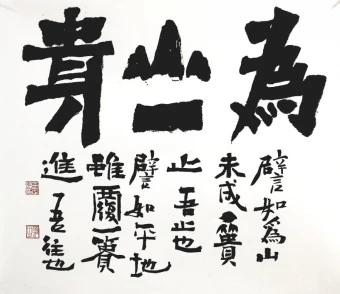 為山一貴
譬如為山
未成一簣
止吾止也
譬如平地
雖覆一簣
進吾往也